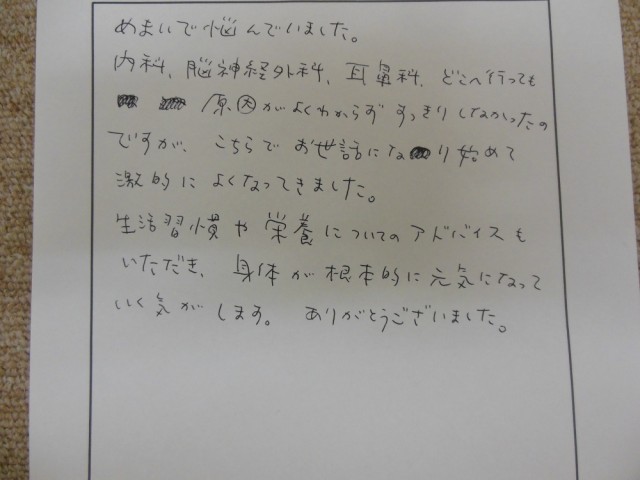 めまいで悩んでいました。
内科、脳神経外科、耳鼻科、どこへ行っても
原因がよくわからず すっきりしなかったの
ですが、こちらでお世話になり始めて
激的によくなってきました。
生活習慣や栄養についてのアドバイスも
いただき、身体が根本的に元気になって
いく気がします。ありがとうございました。